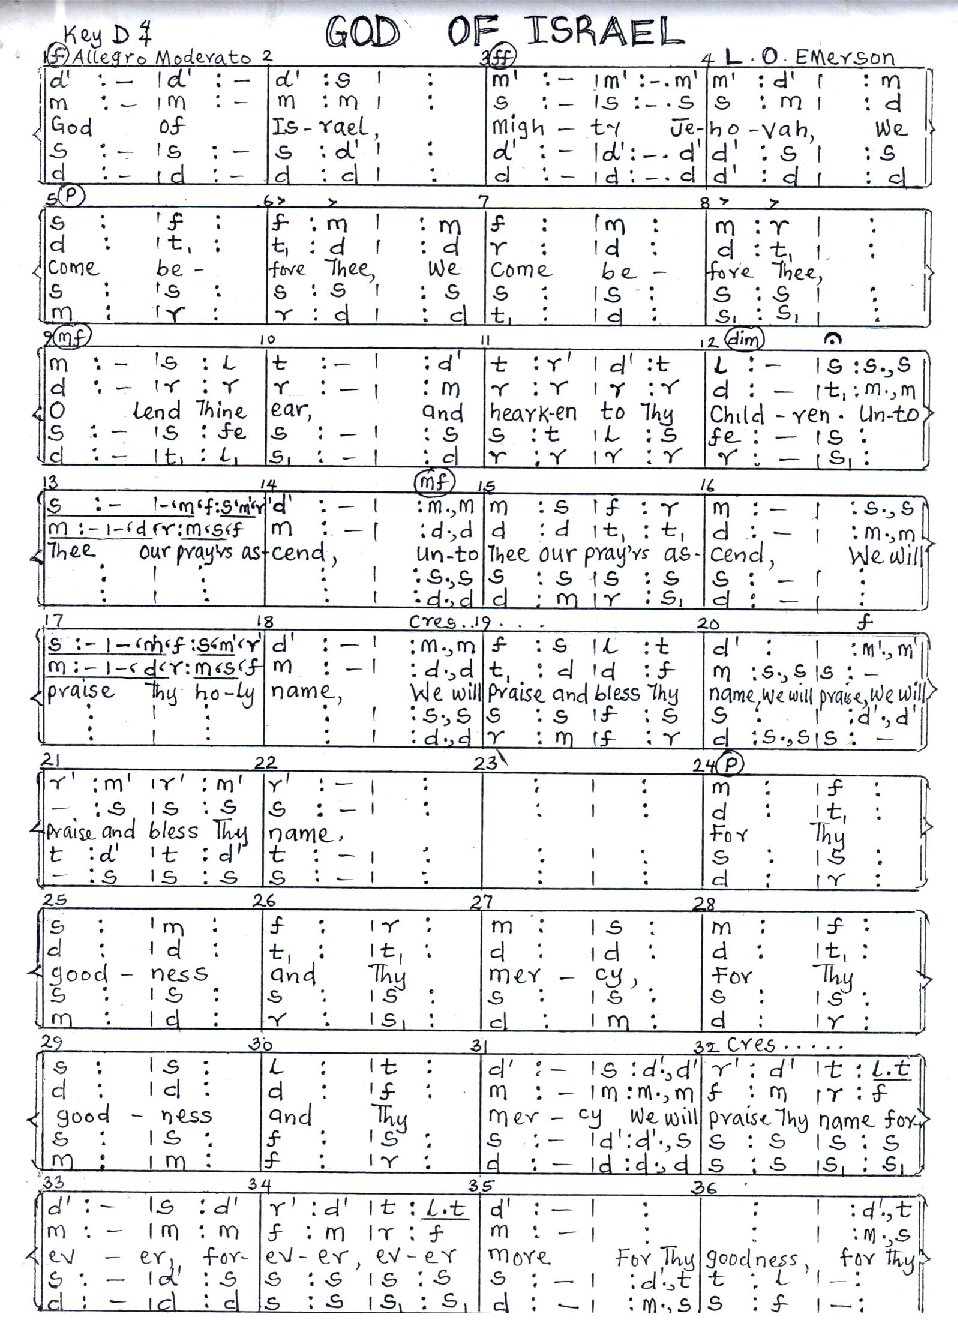 Key D 4/4
GOD OF ISRAEL
1 (f) Allegro Moderato 2 3 (ff) 4 L. O. Emerson
d' :– |d' :– | d' :s | : | m' :– |m' :-.m' | m' :d' | :m
m :– |m :– | m :m | : | s :– |s :-.s | s :m | :d
God of Is-rael, Migh-ty Je-ho-vah, We
s :– |s :– | s :d' | : | d' :– |d' :-.d' | d' :s | :s
d :– |d :– | d :d | : | d :– |d :-.d | d' :d | :d
5 (P) 6 > > 7 8 > >
s : |f : | f :m | :m | f : |m : | m :r | :
d : |t, : | t, :d | :d | r : |d : | d :t, | :
Come be-fore Thee, We Come be-fore Thee,
s : |s : | s :s | :s | s : |s : | s :s | :
m : |r : | r :d | :d | t, : |d : | s, :s, | :
9 (mf) 10 11 12 (dim)
m :– |s :l | t :– | :d' | t :r' |d' :t | l :– |s :s.,s
d :– |r :r | r :– | :m | r :r |r :r | d :– |t, :m.,m
O Lend Thine ear, and heark-en to Thy Child-ren. Un-to
s :– |s :fe | s :– | :s | s :t |l :s | fe :– |s :
d :– |t, :l, | s, :– | :d | r :r |r :r | r :– |s, :
13 14 (mf) 15 16
s :– |-‘m‘f:s‘m‘r' | d' :– | :m.,m | m :s |f :r | m :– | :s.,s
m :– |-‘d‘r:m‘s‘f | m :– | :d.,d | d :d |t, :t, | d :– | :m.,m
Thee our pray'rs as-cend, Un-to Thee our pray'rs as-cend, We will
: | : | : | :s.,s | s :s |s :s | s :– | :
: | : | : | :d.,d | d :m |r :s, | d :– | :
17 18 Cres..19.... 20 f
s :– |-‘m‘f:s‘m'‘r' | d' :– | :m.,m | f :s |l :t | d' : | :m'.,m'
m :– |-‘d‘r:m‘s‘f | m :– | :d.,d | t, :d |d :f | m :s.,s |s :–
praise Thy ho-ly name, We will praise and bless Thy name, We will praise, We will
: | : | : | :s.,s | s :s |f :s | s : | :d'.,d'
: | : | : | :d.,d | r :m |f :r | d :s.,s |s :–
21 22 23 24 (P)
r' :m' |r' :m' | r' :– | : | : | : | m : |f :
– :s |s :s | s :– | : | : | : | d : |t, :
praise and bless Thy name. For Thy
t :d' |t :d' | t :– | : | : | : | s : |s :
– :s |s :s | s :– | : | : | : | d : |r :
25 26 27 28
s : |m : | f : |r : | m : |s : | m : |f :
d : |d : | t, : |t, : | d : |d : | d : |t, :
good-ness and Thy mer-cy, For Thy
s : |s : | s : |s : | s : |s : | s : |s :
m : |d : | r : |s, : | d : |m : | d : |r :
29 30 31 32 Cres.....
s : |s : | l : |t : | d' :– |s :d'.,d' | r' :d' |t :l.t
d : |d : | d : |f : | m :– |m :m.,m | f :m |r :f
good-ness and Thy mer-cy We will praise Thy name for
s : |s : | f : |s : | s :– |d' :d'.,s | s :s |s :s
m : |m : | f : |r : | d :– |d :d.,d | s :s |s, :s,
33 34 35 36
d' :– |s :d' | r' :d' |t :l.t | d' :– | : | : | :d'.,t
m :– |m :m | f :m |r :f | m :– | : | : | :m.,s
ev-er, for-ev-er, ev-er more For Thy goodness, for thy
s :– |d' :s | s :s |s :s | s :– | :d'.,t | t :l |– :
d :– |d :d | s :s |s, :s, | d :– | :m.,s | s :f |– :